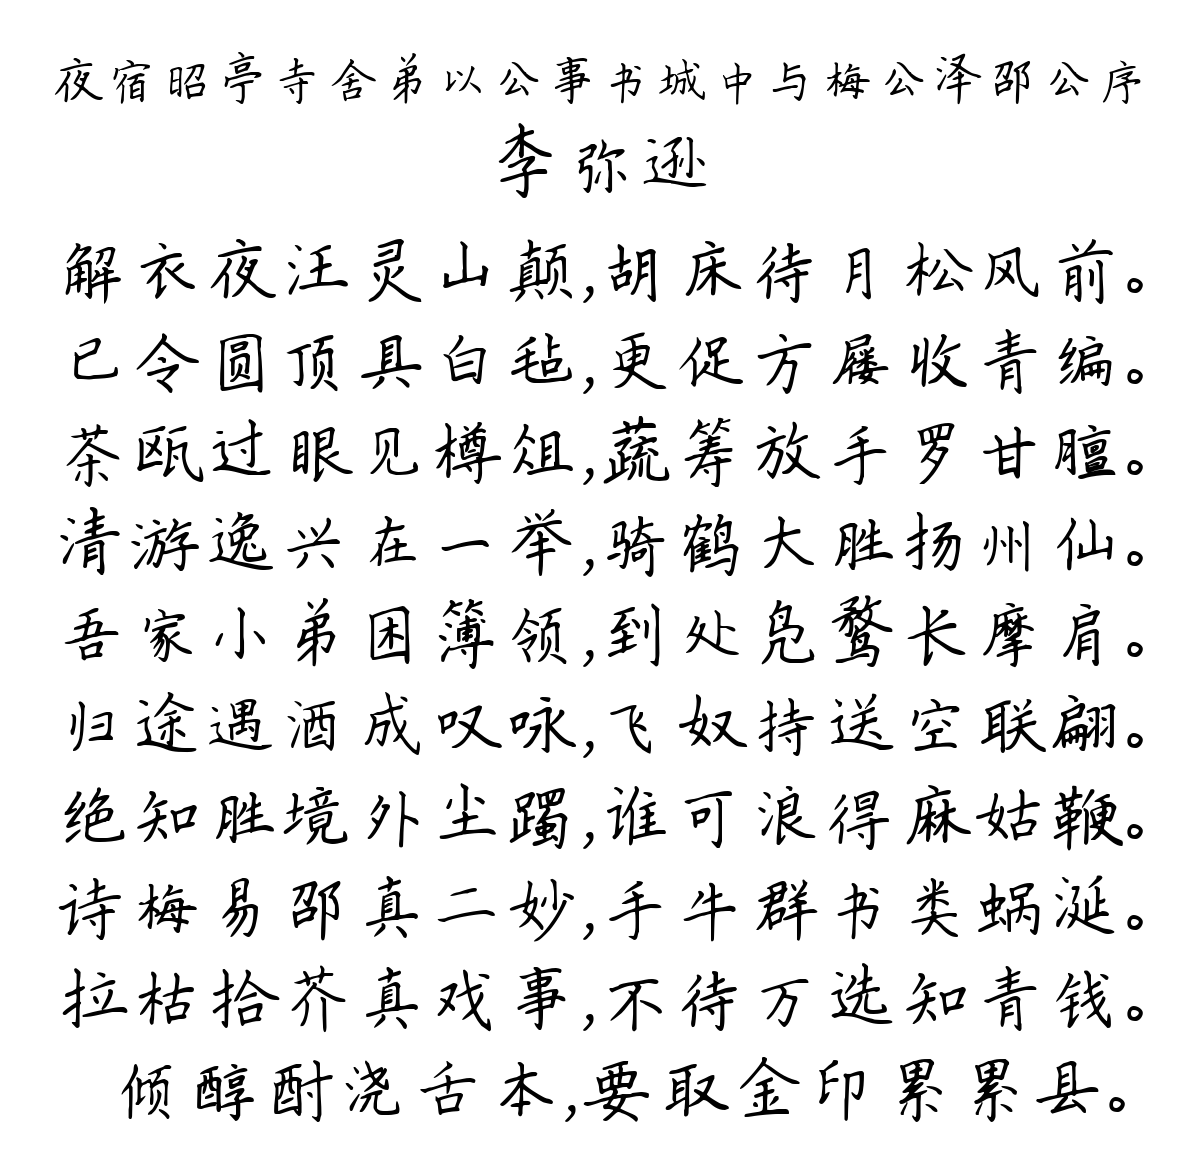 夜宿昭亭寺舍弟以公事书城中与梅公泽邵公序
李弥逊
解衣夜汪灵山颠,胡床待月松风前。
已令圆顶具白毡,更促方屦收青编。
茶瓯过眼见樽俎,蔬筹放手罗甘膻。
清游逸兴在一举,骑鹤大胜扬州仙。
吾家小弟困簿领,到处凫鹜长摩肩。
归途遇酒成叹咏,飞奴持送空联翩。
绝知胜境外尘躅,谁可浪得麻姑鞭。
诗梅易邵真二妙,手牛群书类蜗涎。
拉枯拾芥真戏事,不待万选知青钱。
倾醇酎浇舌本,要取金印累累县。